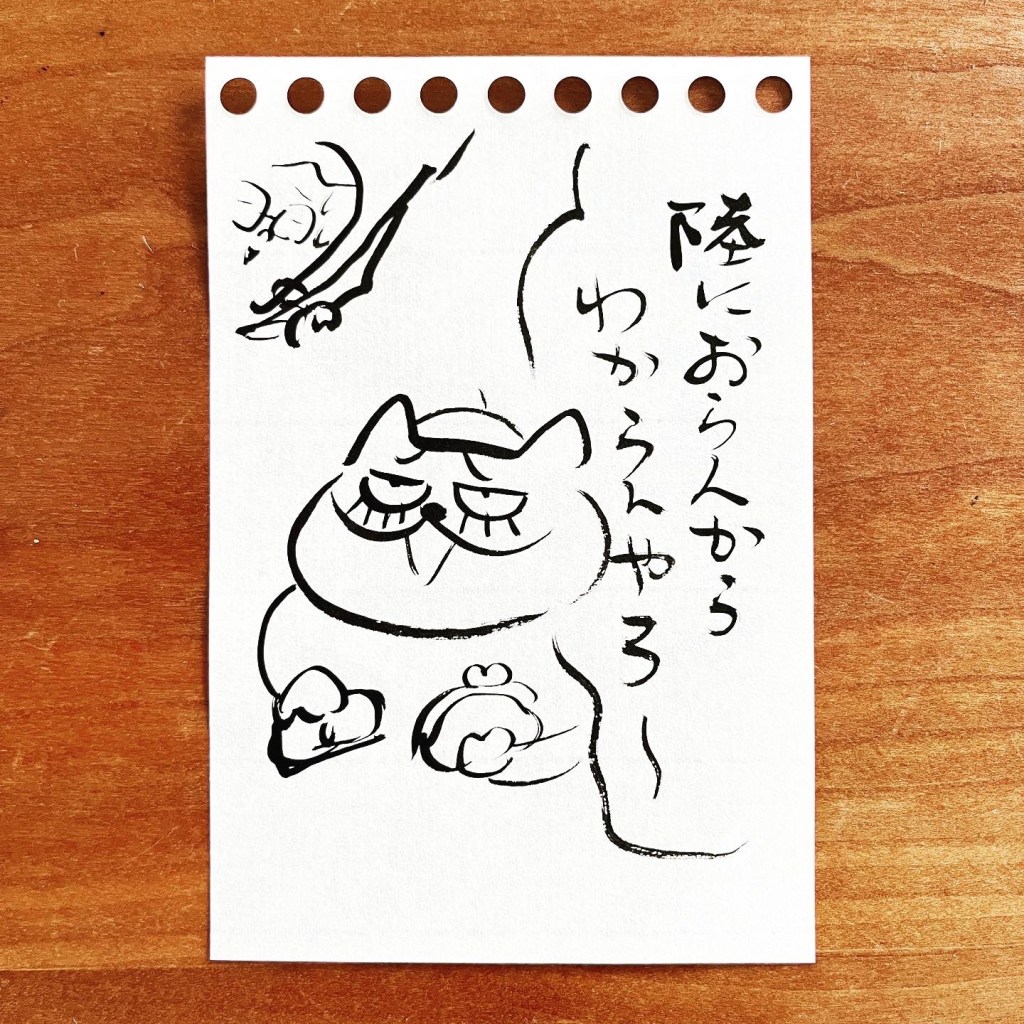 陸におらんから
わからんやろ〜